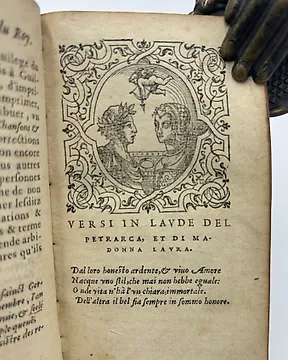 du Roy.
uilege du
à Guil-
d'impri-
mprimer,
ibuer, vn
Chansons &
orrections
on encore
ous autres
personnes
me de non
er lesditz
tations &
& terme
ende arbi-
res qu'ils
VERSI IN LAVDE DEL
PETRARCA, ET DI MA-
DONNA LAVRA.
Dal loro honesto ardente, & viuo Amore
Nacque vno stil, che mai non hebbe eguale:
Onde vita n'hà l'vn chiara, immortale.
Dell'altra il bel fia sempre in sommo honore.